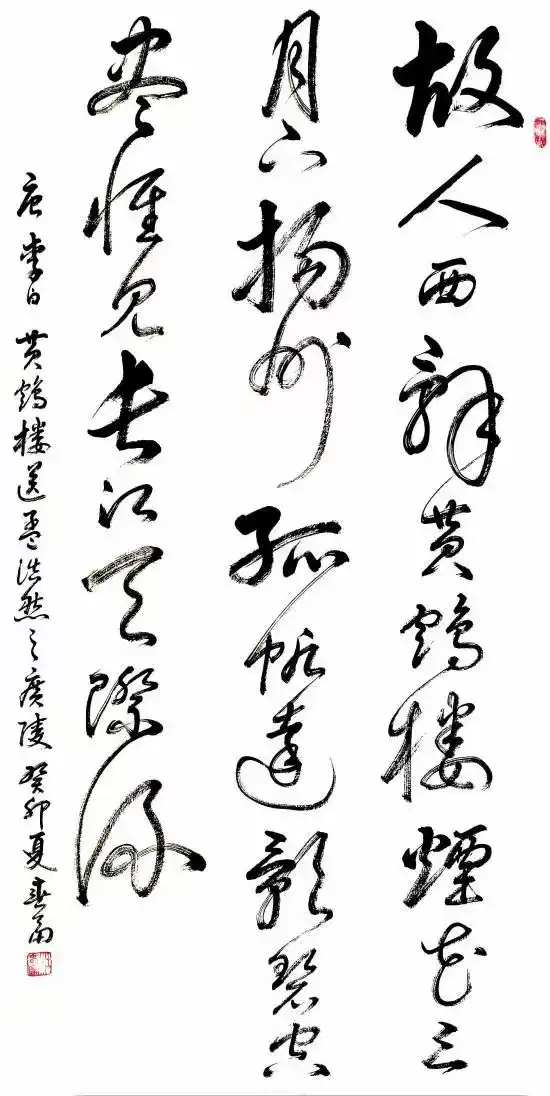 故人西辭黃鶴樓煙花三
月下揚州孤帆遠影碧空
盡惟見長江天際流
唐李白黃鶴樓送孟浩然之廣陵癸卯夏